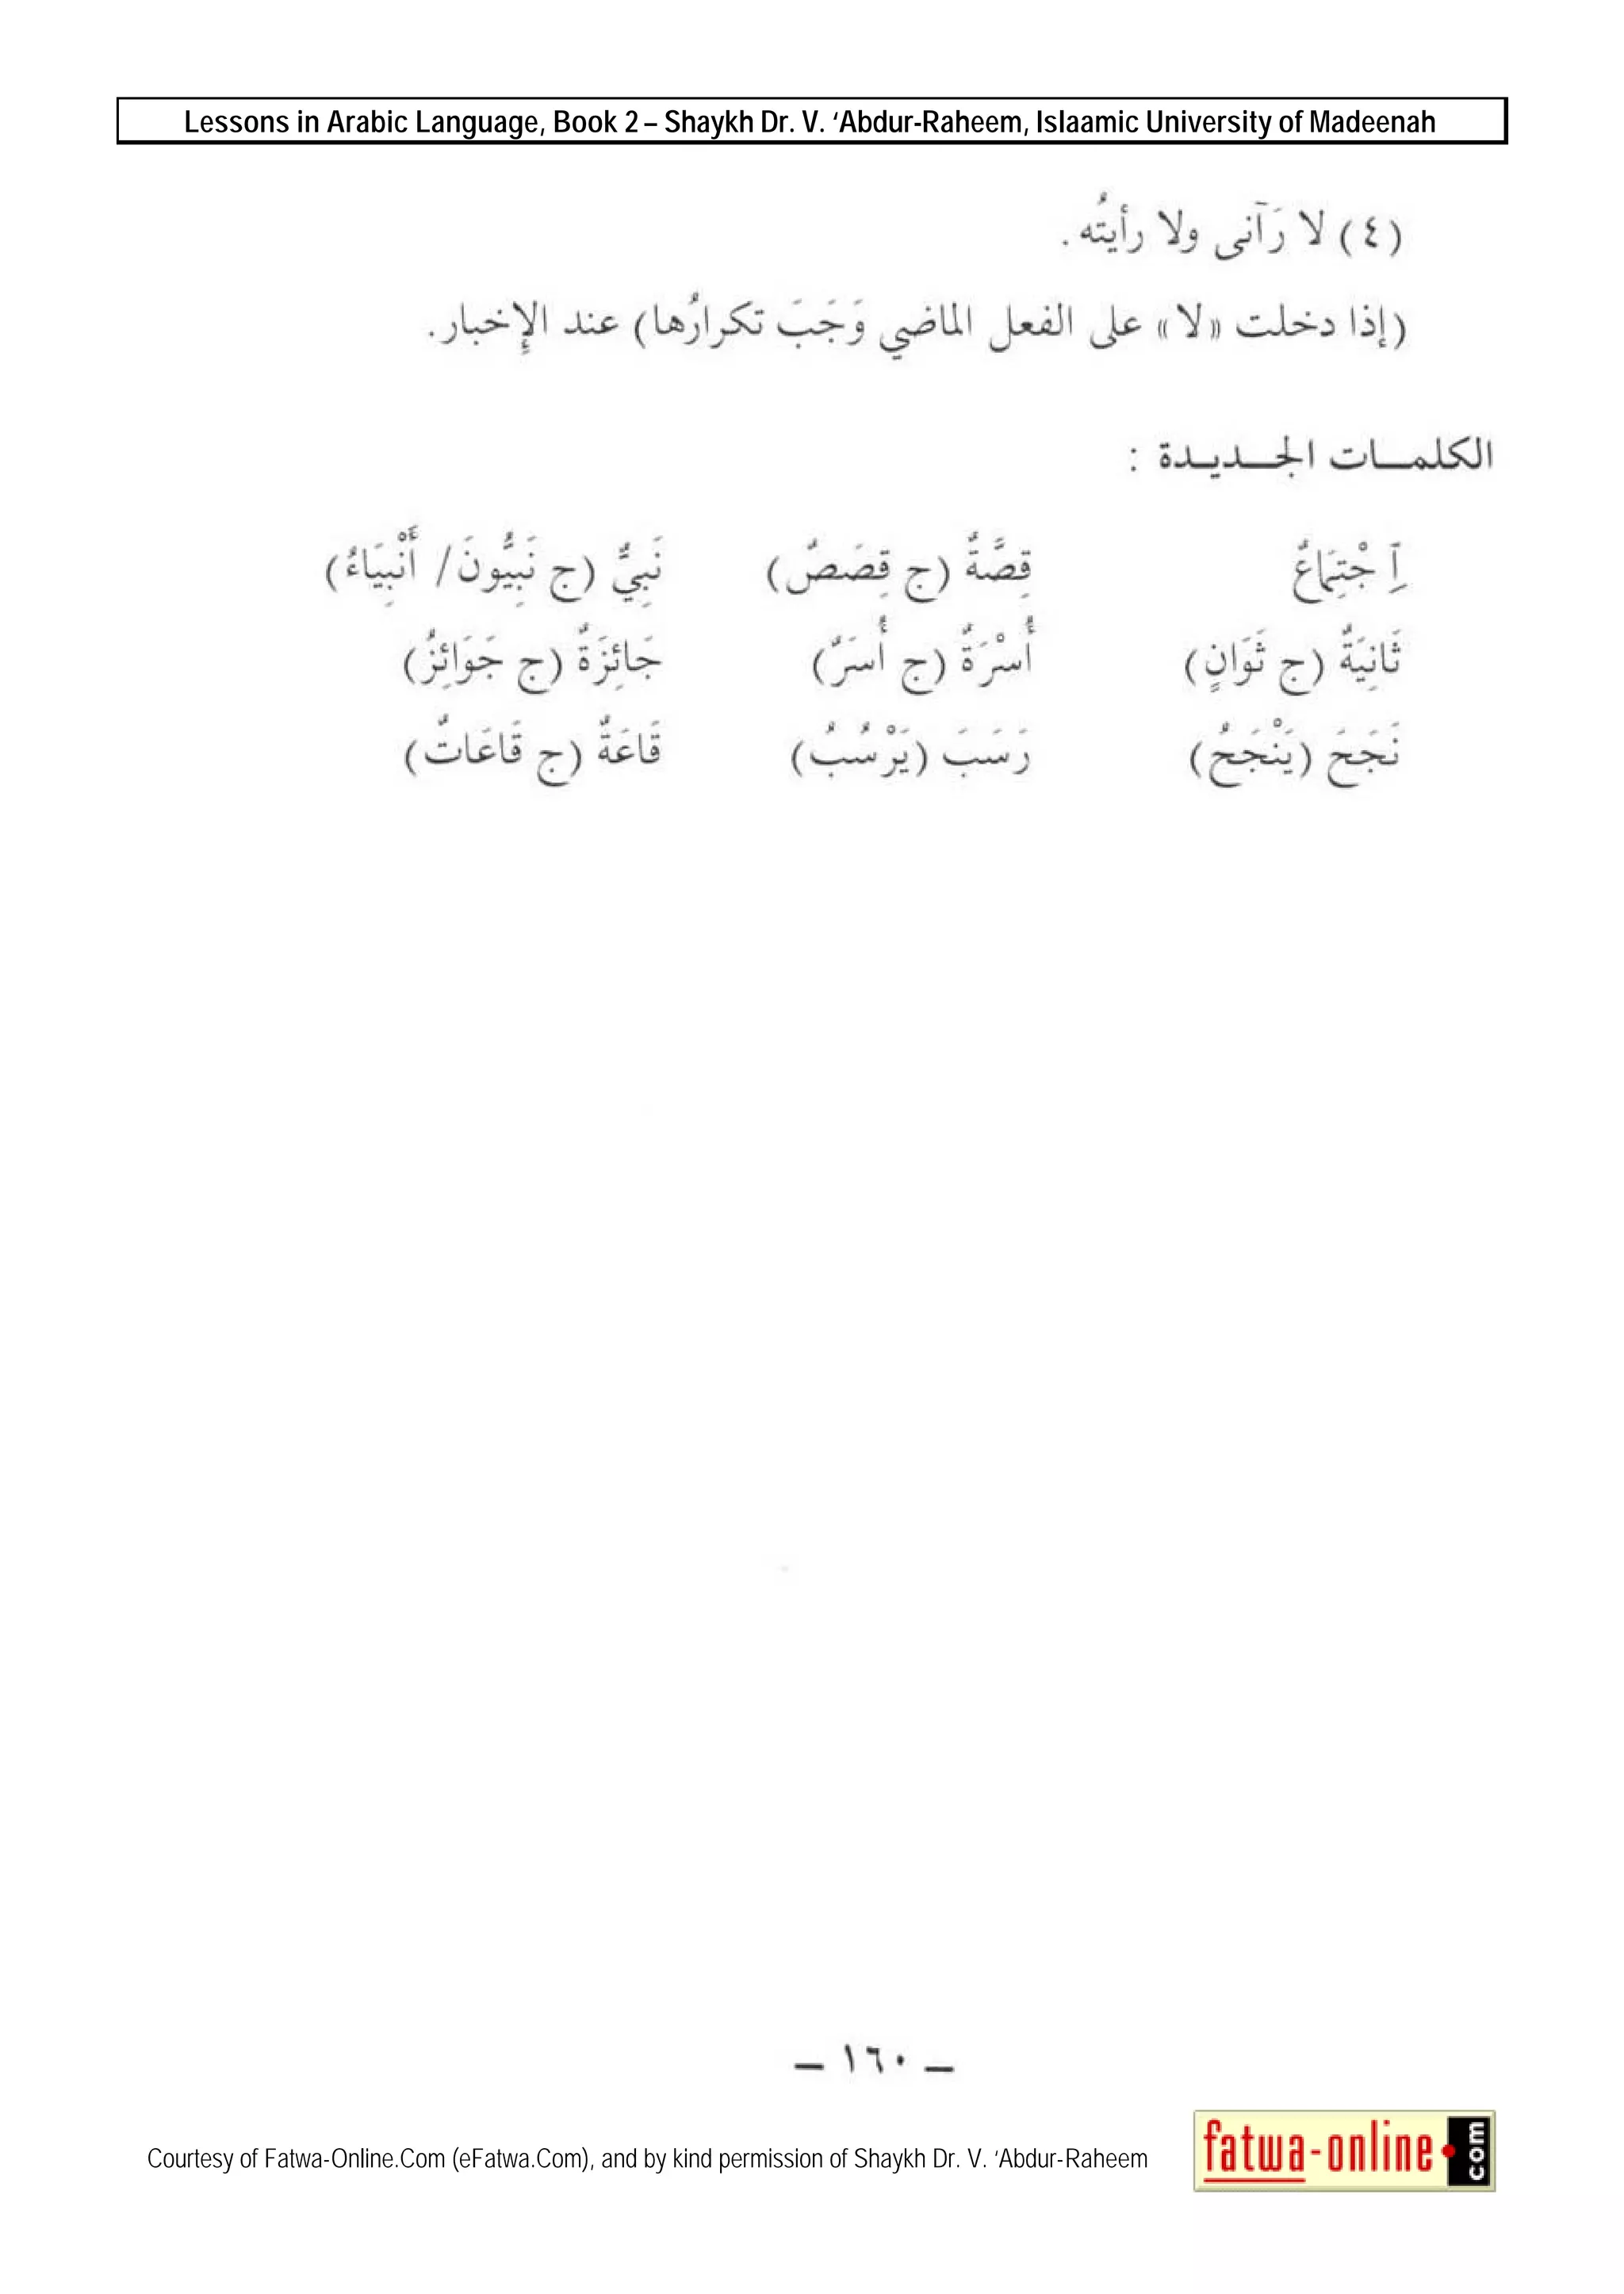 Lessons in Arabic Language, Book 2 – Shaykh Dr. V. ‘Abdur-Raheem, Islaamic University of Madeenah
(٤) لا رَآنى ولا رأيتُه .
(إذا دخلت «لا» على الفعل الماضي وَجَبَ تكرارُها) عند الإخبار.
الكلمـات الجـديـدة :
اِجْتِمَاعٌ قِصَّةٌ (ج قِصَصٌ) نَبِيٌّ (ج نَبِيُّونَ/ أَنْبِيَاءُ)
ثَانِيَةٌ (ج ثَوَانٍ) أُسْرَةٌ (ج أُسَرٌ) جَائِزَةٌ (ج جَوَائِزُ)
نَجَحَ (يَنْجَحُ) رَسَبَ (يَرْسُبُ) قَاعَةٌ (ج قَاعَاتٌ)
– ١٦٠ –
Courtesy of Fatwa-Online.Com (eFatwa.Com), and by kind permission of Shaykh Dr. V. ‘Abdur-Raheem
fatwa-online.com